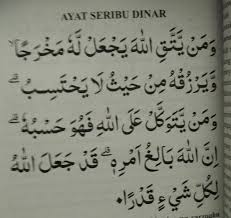 AYAT SERIBU DINAR
وَمَنْ يَّتَّقِ اللّٰهَ يَجْعَلْ لَّهٗ مَخْرَجًاۙ
وَّيَرْزُقْهُ مِنْ حَيْثُ لَا يَحْتَسِبُۗ
وَمَنْ يَّتَوَكَّلْ عَلَى اللّٰهِ فَهُوَ حَسْبُهٗۗ
اِنَّ اللّٰهَ بَالِغُ اَمْرِهٖۗ قَدْ جَعَلَ اللّٰهُ
لِكُلِّ شَيْءٍ قَدْرًا